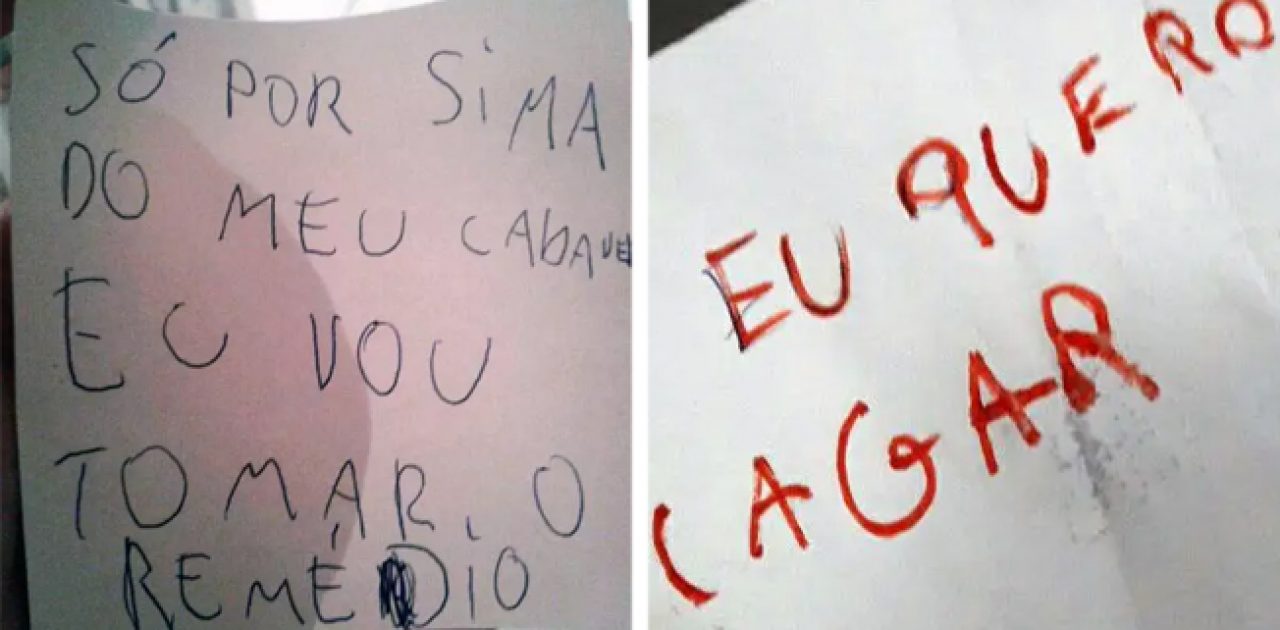 SÓ POR SiMA
DO MEU CADAVER
EU VOU
TOMAR O
REMÉDiO
EU QUERO
CAGAR